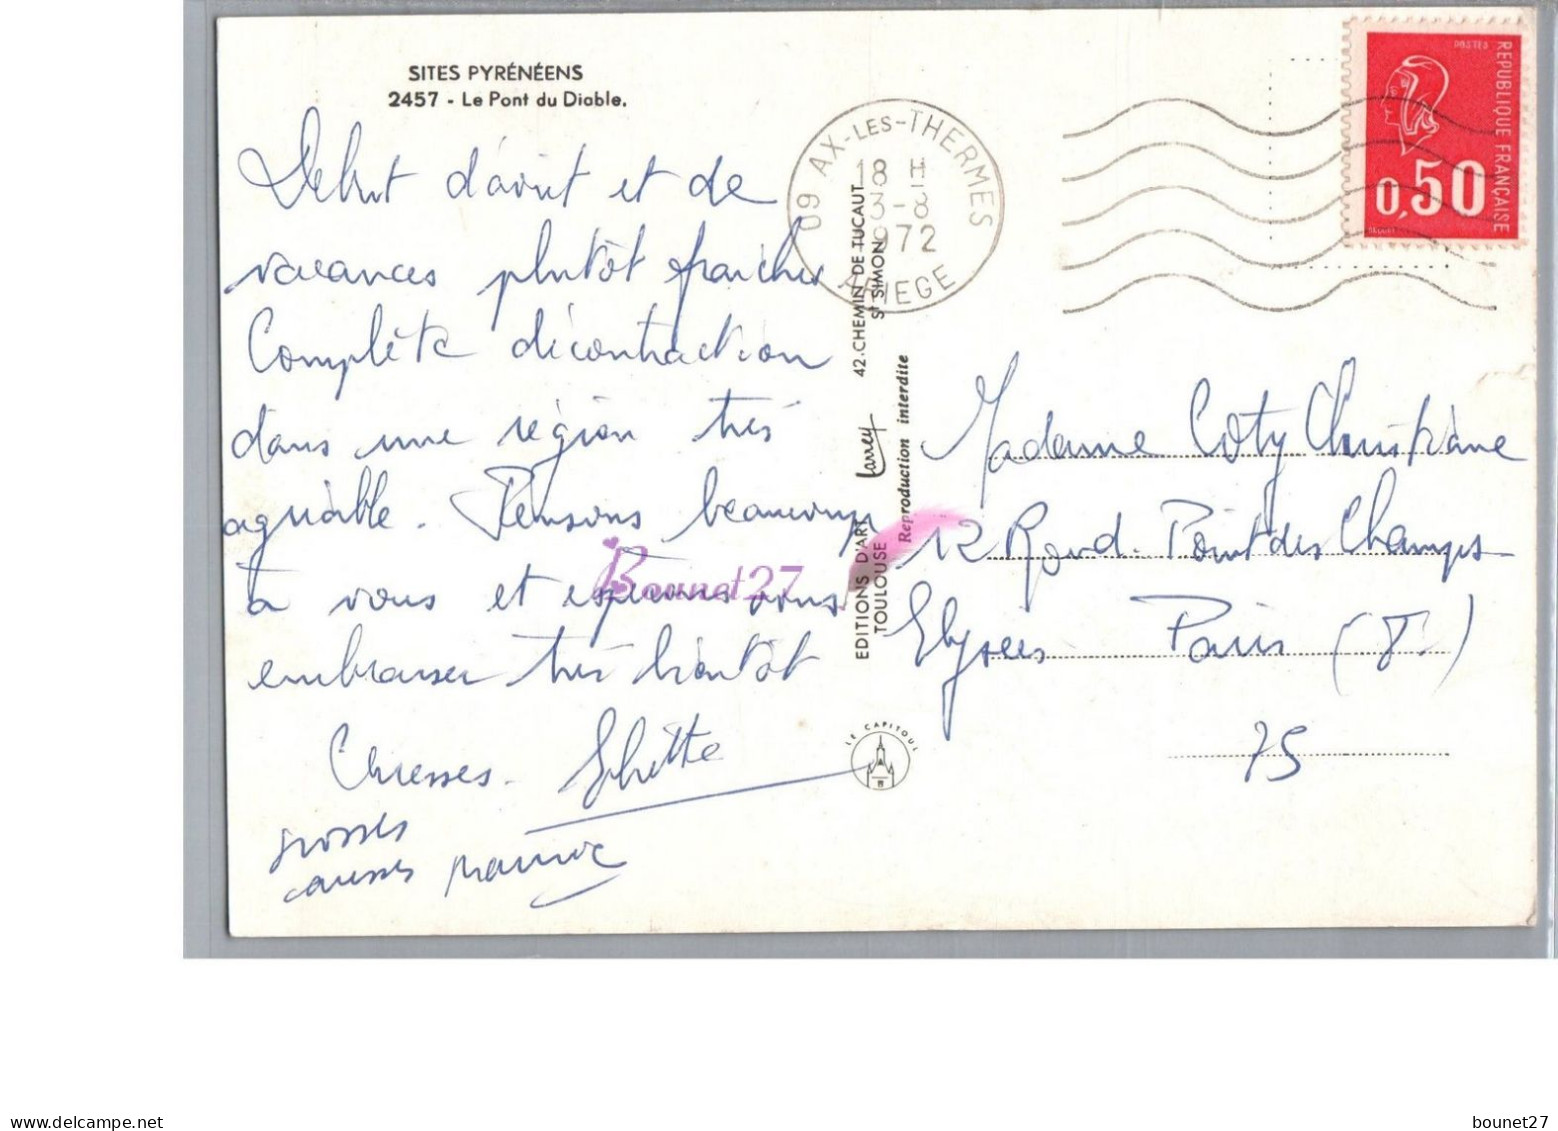 SITES PYRÉNÉENS
2457 - Le Pont du Diable.
Début d'août et de
vacances plutôt fraîches
Complète décontraction
dans une région très
agréable. Pensons beaucoup
à vous et espérons vous
embrasser très bientôt
grosses
09 AX-LES-THERMES
18 H
3-8
1972
ARIEGE
REPUBLIQUE FRANÇAISE
POSTES
0,50
EDITIONS D'ART Larrey 42.CHEMIN DE TUCAUT
TOULOUSE St SIMON
Reproduction interdite
LE CAPITOUL
Madame Coty Christiane
12 Rond-Point des Champs-
Elysées Paris (8e)
75
Bounet27
https://www.delcampe.net
bounet27